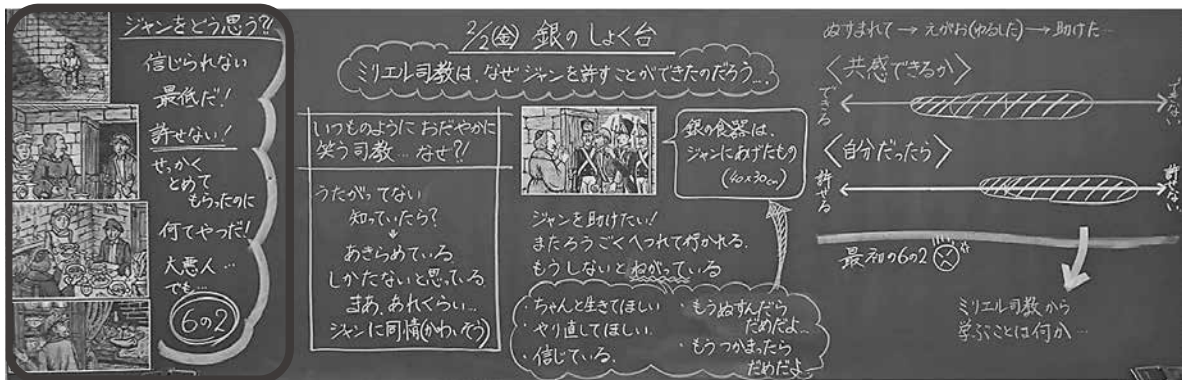 ジャンをどう思う?!
信じられない
最低だ!
許せない!
せっかく
とめて
もらったのに
何てやつだ!
大悪人…
でも…
6の2
2/2(金) 銀のしょく台
ミリエル司教は、なぜジャンを許すことができたのだろう…。
いつものように おだやかに
笑う司教… なぜ?!
うたがってない
知っていたら?
↓
あきらめている
しかたないと思っている
まあ、あれくらい…
ジャンに同情(かわいそう)
銀の食器は、
ジャンにあげたもの
(40×30cm)
ジャンを助けたい!
またろうごくへつれて行かれる。
もうしないとねがっている
・ちゃんと生きてほしい
・やり直してほしい
・信じている。
・もうぬすんだら
だめだよ…
・もうつかまったら
だめだよ…
ぬすまれて → えがお(ゆるした) → 助けた…
〈共感できるか〉
できる
できない
〈自分だったら〉
許せる
許せない
最初の6の2
ミリエル司教から
学ぶことは何か…